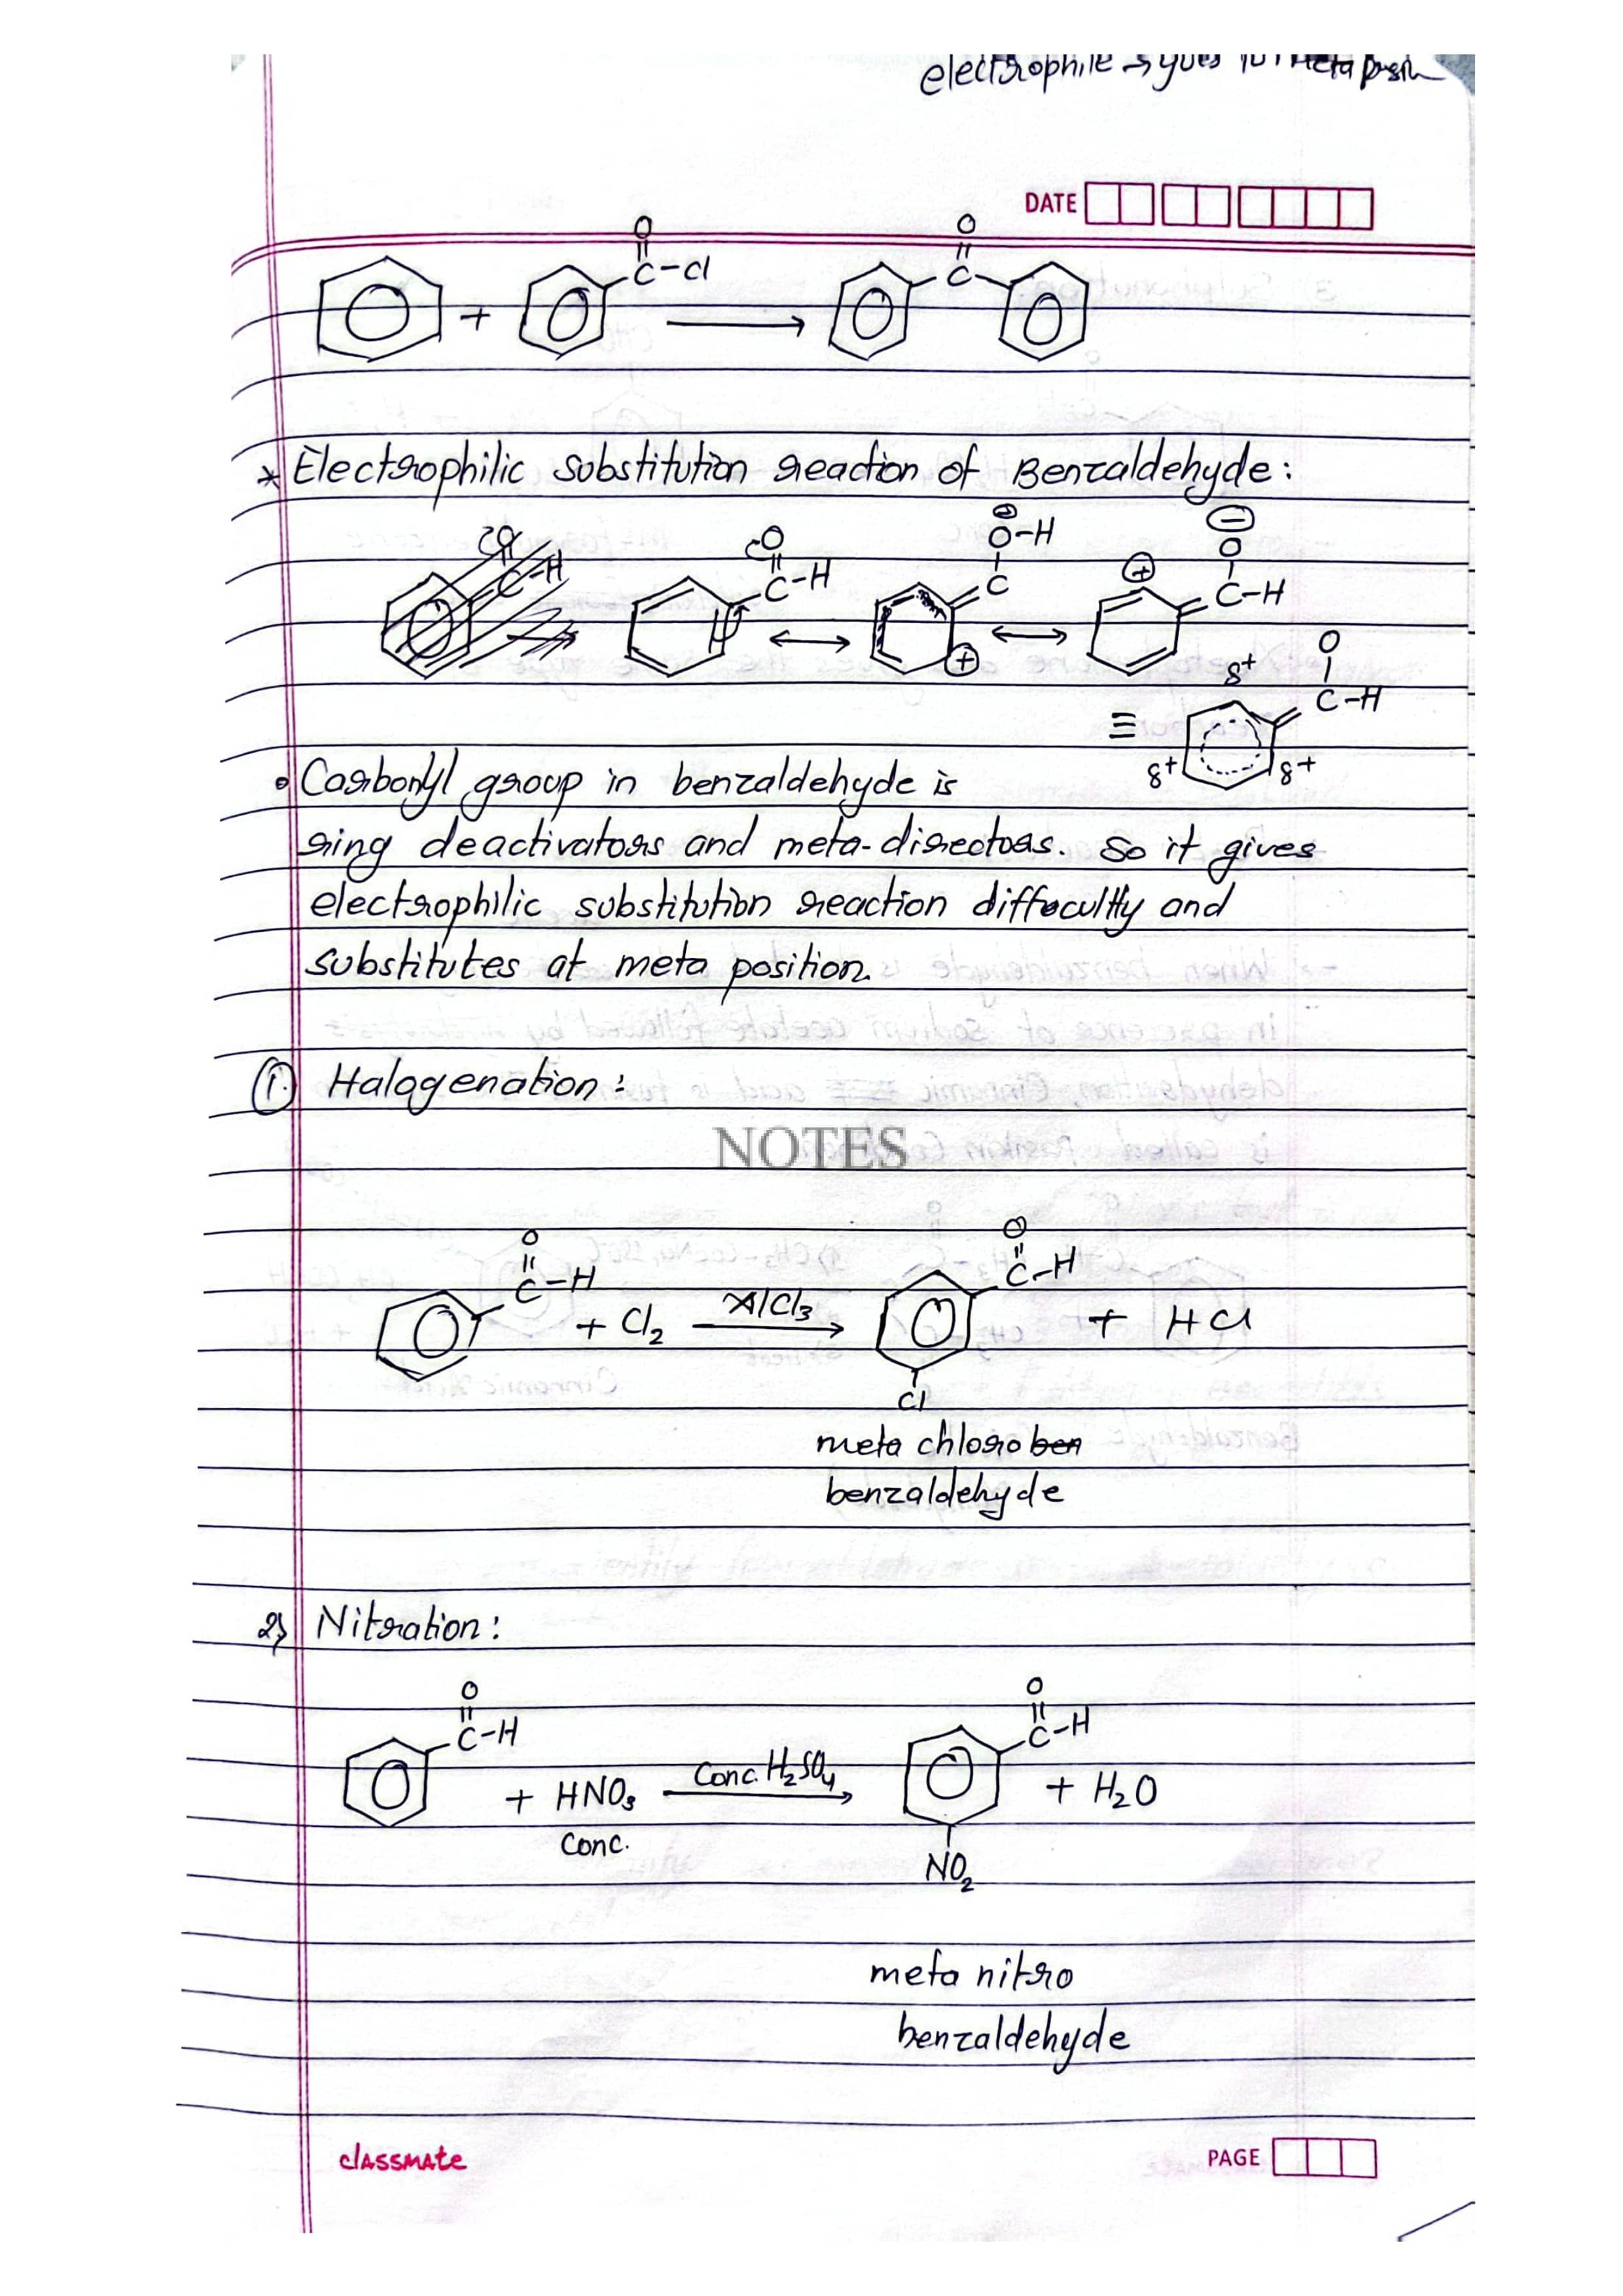 electrophile → gives to meta posn
DATE
O O
C-Cl C
+
* Electrophilic substitution reaction of Benzaldehyde:
O O-H O
C-H C-H C C-H
δ+ O
≡ C-H
δ+ δ+
• Carbonyl group in benzaldehyde is
ring deactivators and meta-directors. So it gives
electrophilic substitution reaction diffocultly and
substitutes at meta position.
1. Halogenation:
NOTES
O O
C-H C-H
+ Cl2 AlCl3 + HCl
Cl
meta chloro ben
benzaldehyde
2) Nitration:
O O
C-H C-H
+ HNO3 Conc. H2SO4 + H2O
Conc.
NO2
meta nitro
benzaldehyde
classmate PAGE